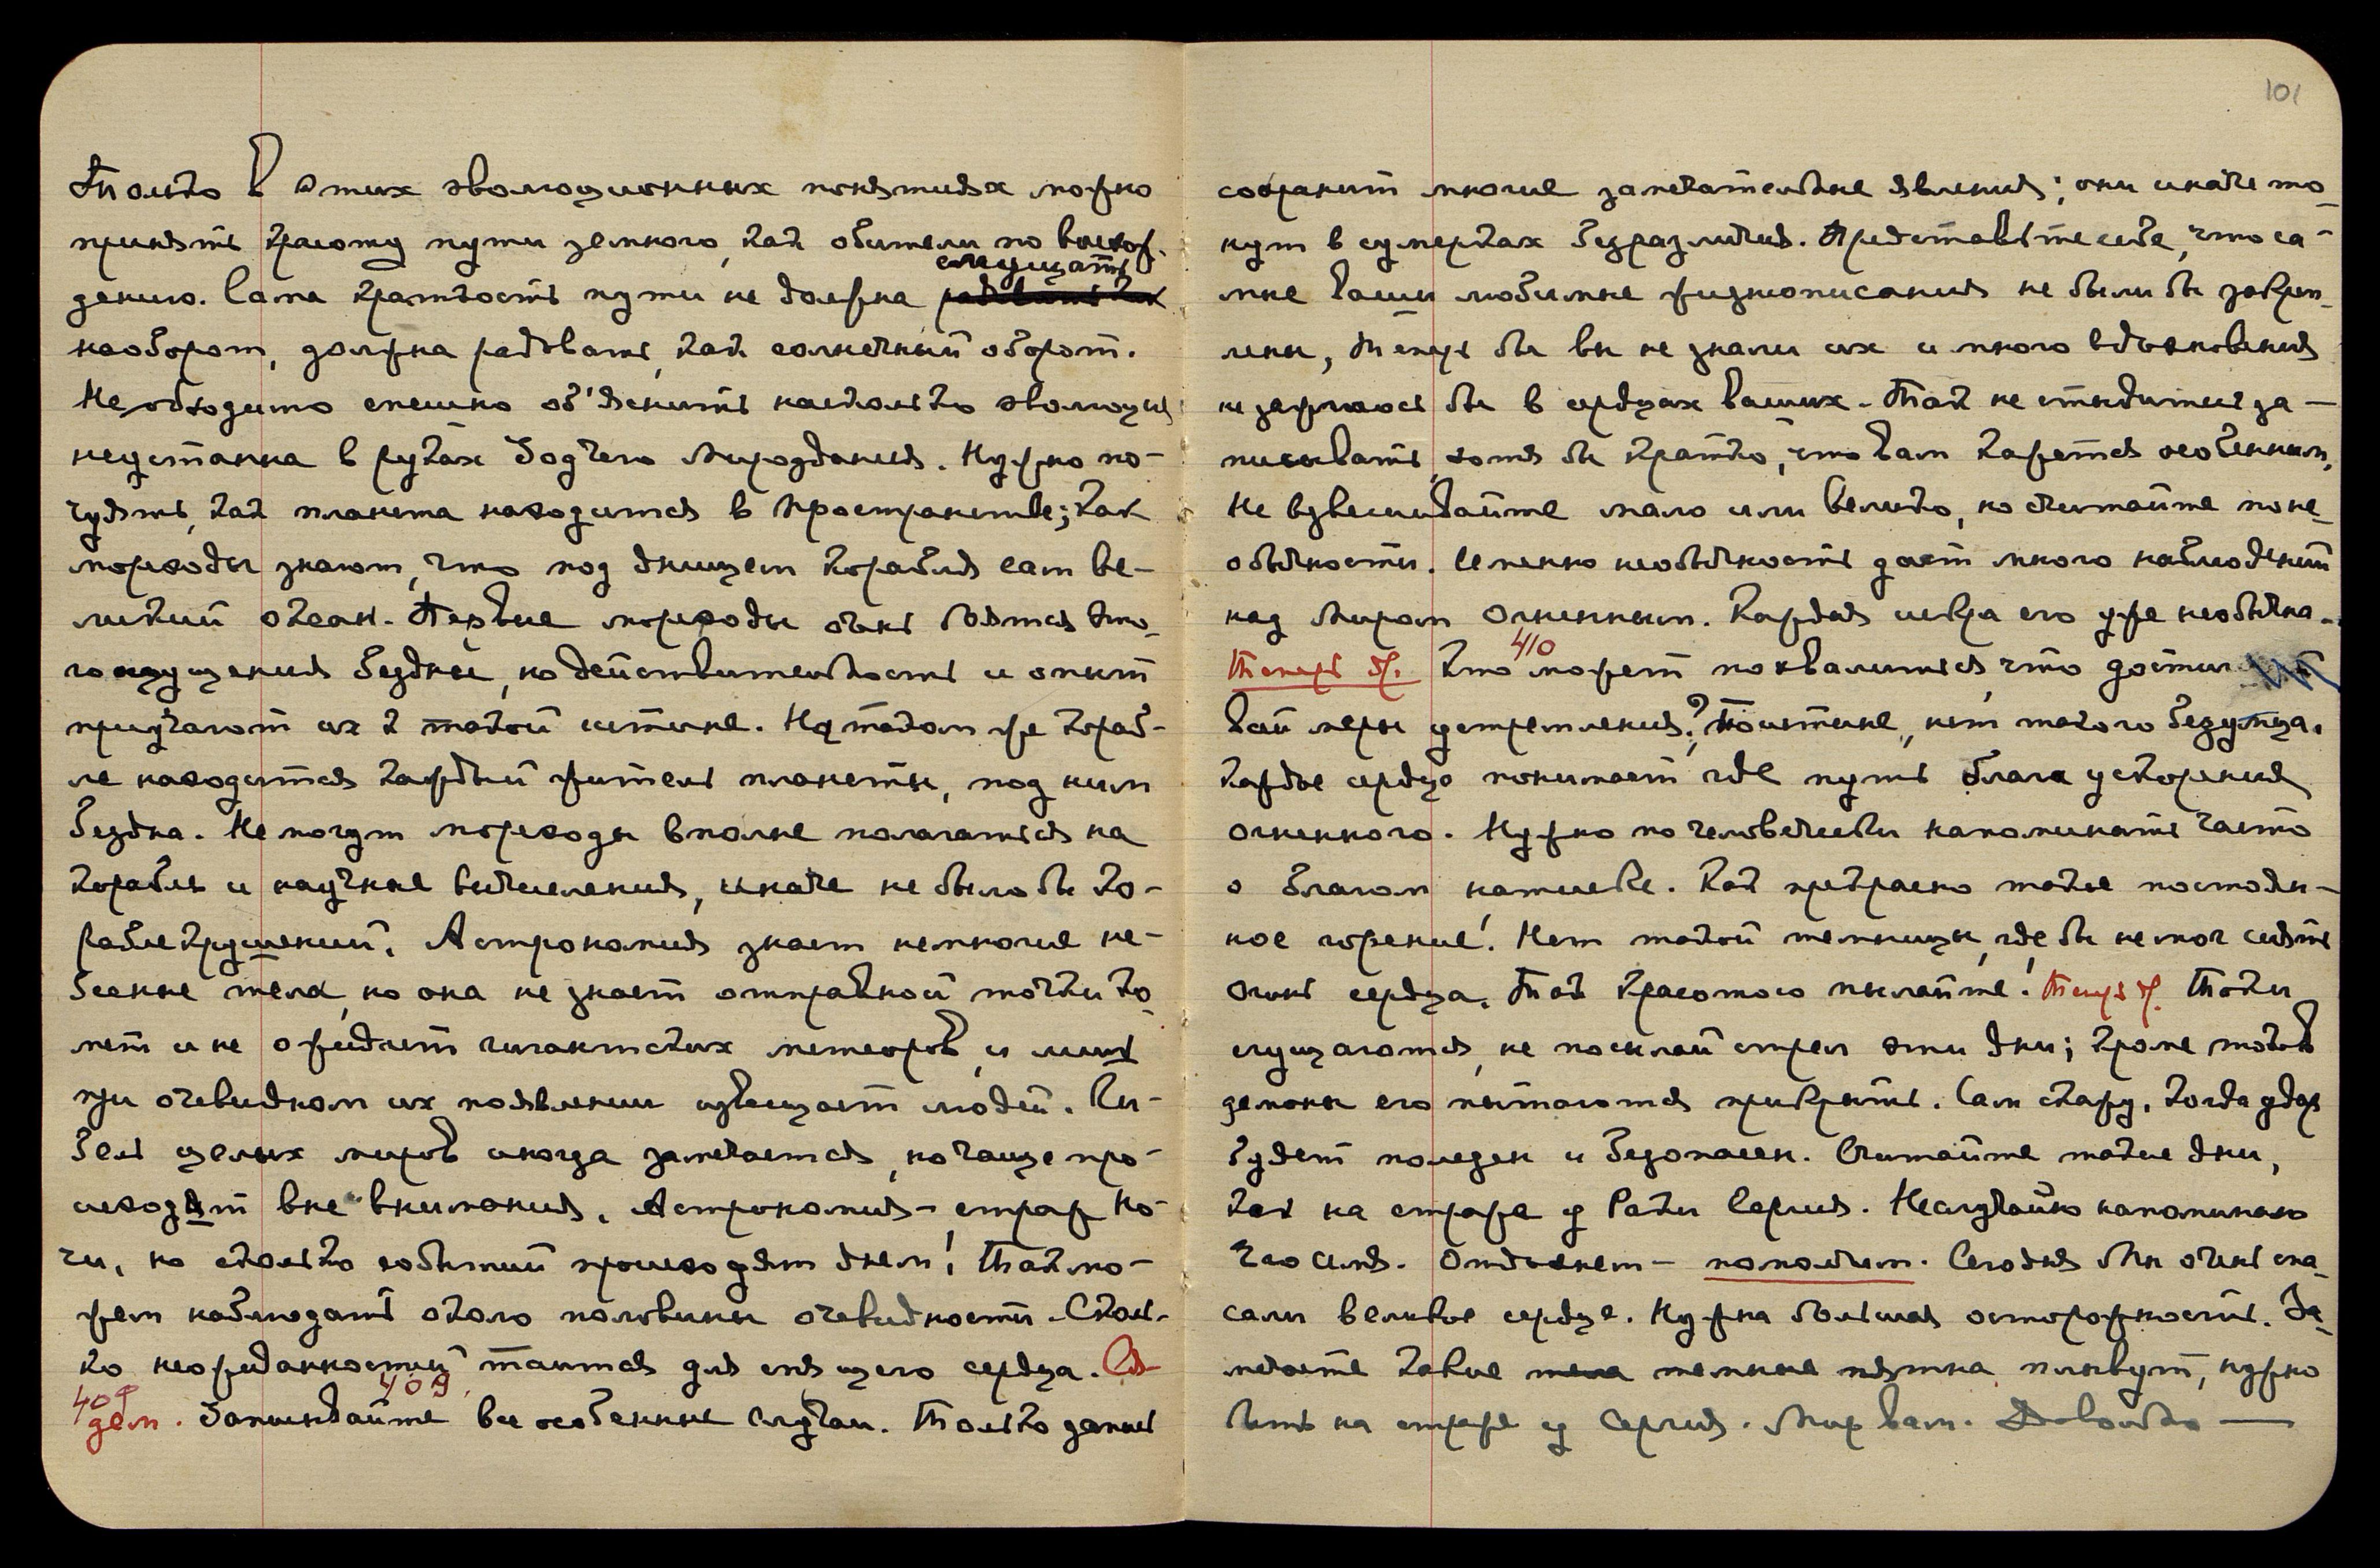 Только в этих эволюционных понятиях можно
принять красоту пути земного, как обители по восхож-
смущать
дению. Сама краткость пути не должна
наоборот, должна радовать, как солнечный оборот.
Необходимо спешно об'яснить насколько эволюция
неустанна в руках Зодчего Мироздания. Нужно по-
чуять, как планета находится в пространстве; как
мореходы знают, что под днищем корабля сам ве-
ликий океан. Первые мореходы очень боятся это-
го ощущения бездны, но действительность и опыт
приучают их к такой истине. На таком же кораб-
ле находится каждый житель планеты, под ним
бездна. Не могут мореходы вполне полагаться на
корабль и научные вычисления, иначе не было бы ко-
раблекрушений. Астрономия знает немногие не-
бесные тела, но она не знает отправной точки ко-
мет и не ожидает гигантских метеоров, и лишь
при очевидном их появлении извещает людей. Ги-
бель целых миров иногда замечается, но чаще про-
исходят вне внимания. Астрономия - страж но-
чи, но сколько событий происходят днем! Так мо-
жем наблюдать около половины очевидности. Сколь-
ко неожиданностей таится для спящего сердца. Ся-
409 409
дем. Записывайте все особенные случаи. Только запись
101
сохранит многие замечательные явления; они иначе то-
нут в сумерках безразличия. Представьте себе, что са-
мые ваши любимые жизнеописания не были бы закреп-
лены, теперь бы вы не знали их и много вдохновения
не зажглось бы в сердцах ваших. Так не стыдитесь за-
писывать, хотя бы кратко, что вам кажется особенным.
Не взвешивайте мало или велико, но считайте по не-
обычности. Именно необычность дает много наблюдений
над Миром Огненным. Каждая искра его уже необычна.
410
Теперь др. Кто может похвалиться, что достиг
кой меры устремления? Поистине, нет такого безумца.
Каждое сердце понимает где путь блага ускорения
огненного. Нужно по человечески напоминать часто
о благом натиске. Как прекрасно такое постоян-
ное горение! Нет такой темницы, где бы не мог сиять
огонь сердца. Так красотою пылайте! Теперь др. Токи
сгущаются, не посылай стрел эти дни; кроме того
демоны его пытаются прикрыть. Сам скажу, когда удар
будет полезен и безопасен. Считайте такие дни,
как на страже у Раки Сергия. Неслучайно напоминаю
Его имя. Отдохнем - помолчим. Сегодня Мы очень спа-
сали великое сердце. Нужна большая осторожность. За-
мечаете какие темные пятна плывут, нужно
быть на страже у Сергия. Мир вам. Довольно —